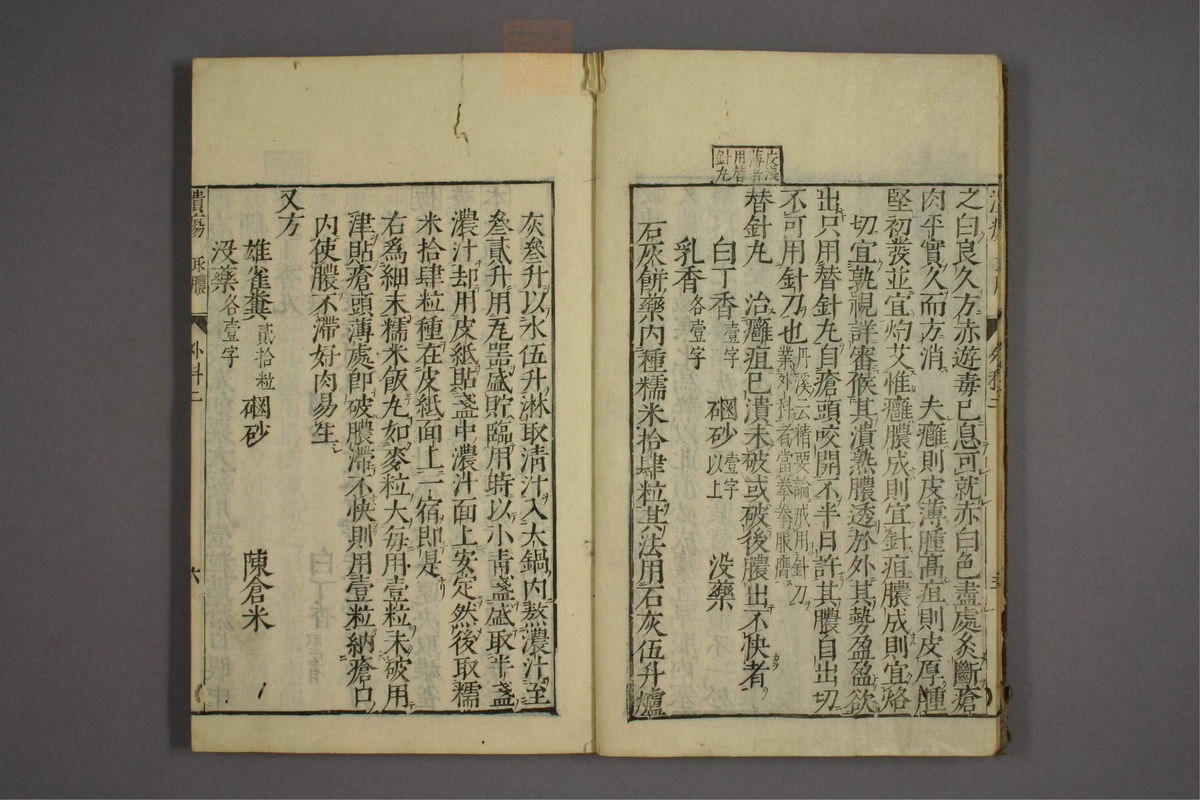 之曰良久方赤遊毒已息可就赤白色盡處灸斷瘡
肉平實久而方消　夫癰則皮薄腫髙疽則皮厚腫
堅初發並宜灼艾惟癰膿成則宜針疽膿成則宜烙
切宜孰視詳審候其潰熟膿透於外其勢盈盈欲
出只用替針丸自瘡頭咬開不半日許其膿自出切
不可用針刀也丹溪云精要論戒用針刀
業外科者當拳拳服膺
皮淺
薄者
用替
針丸
替針丸　治癰疽已潰未破或破後膿出不快者
白丁香壹字　硇砂壹字以上　没藥
乳香各壹字
石灰餅藥内種糯米拾肆粒其法用石灰伍升爐
灰叄升以水伍升淋取清汁入大鍋内熬濃汁至
叄貳升用瓦器盛貯臨用時以小青盞盛取半盞
濃汁却用皮紙貼盞中濃汁面上安定然後取糯
米拾肆粒種在皮紙面上一宿即是
右爲細末糯米飯丸如麥粒大每用壹粒未破用
津貼瘡頭薄處即破膿滯不快則用壹粒納瘡口
内使膿不滯好肉易生
又方
雄雀糞貳拾粒　硇砂　陳倉米
没藥各壹字
潰瘍
外科二
六